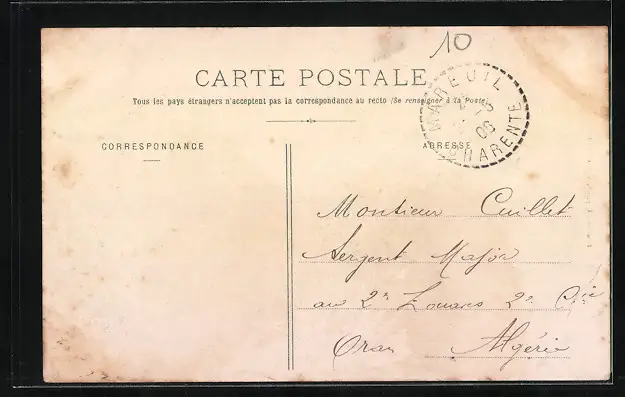 10
CARTE POSTALE
Tous les pays étrangers n'acceptent pas la correspondance au recto (Se renseigner à la Poste)
MAREUIL
06
CHARENTE
CORRESPONDANCE
ADRESSE
Monsieur Cuillet
Sergent Major
au 2e Zouaves 2e Cie
Oran Algérie